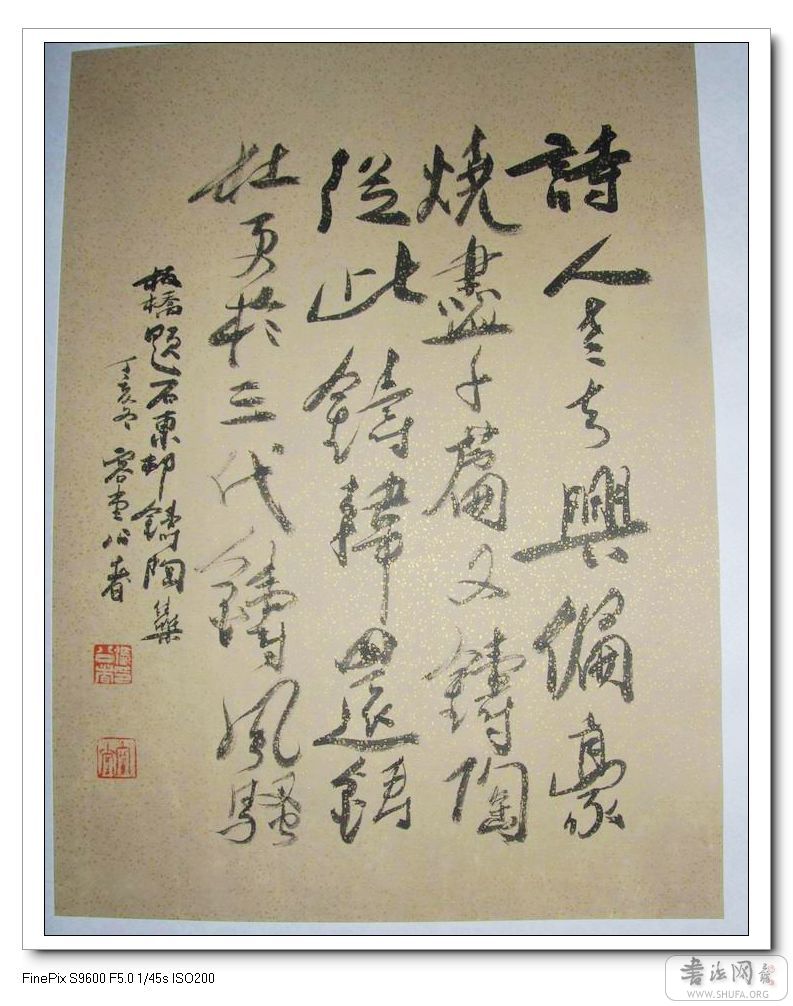 詩人老去興偏豪
燒盡千篇又鑄陶
從此鑄韓還鑄
杜更於三代鑄風騷
板橋題石東邨鑄陶集
丁亥冬 容堂
FinePix S9600 F5.0 1/45s ISO200
書法网
WWW.SHUFA.ORG